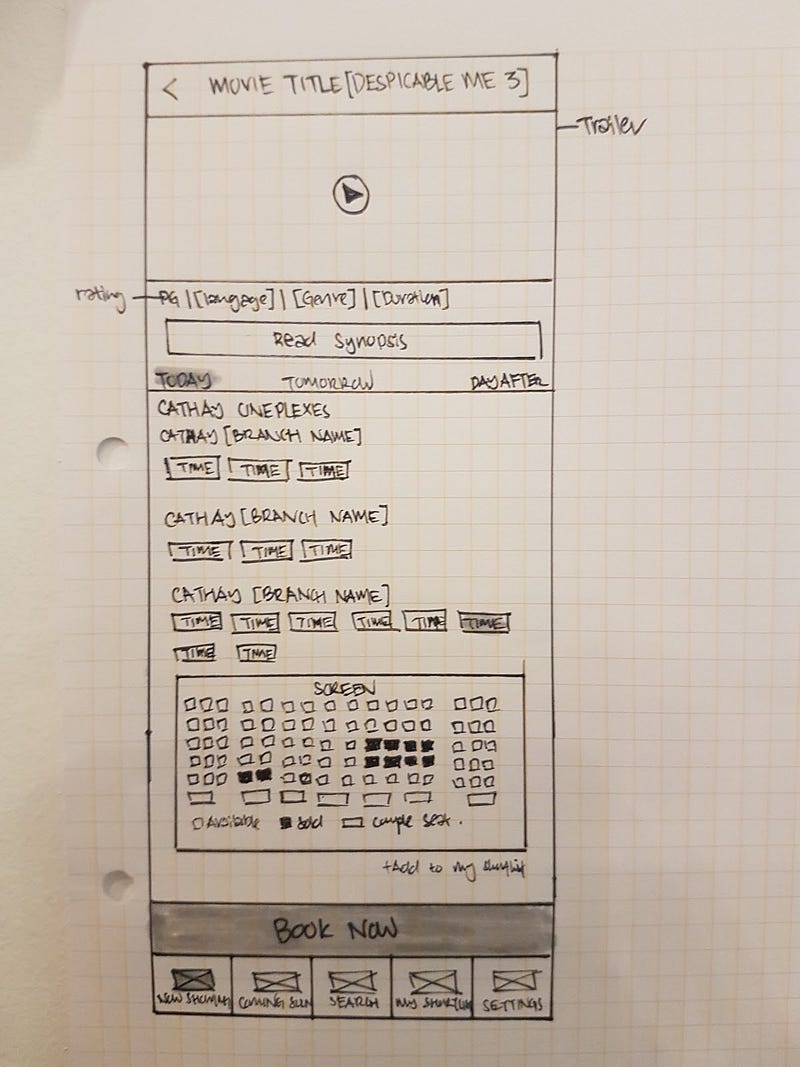 < MOVIE TITLE [DESPICABLE ME 3]
Trailer
rating
PG | [language] | [Genre] | [Duration]
Read Synopsis
TODAY TOMORROW DAY AFTER
CATHAY CINEPLEXES
CATHAY [BRANCH NAME]
TIME TIME TIME
CATHAY [BRANCH NAME]
TIME TIME TIME
CATHAY [BRANCH NAME]
TIME TIME TIME TIME TIME TIME
TIME TIME
SCREEN
Available Sold couple seat.
+Add to my shortlist
BOOK NOW
NOW SHOWING COMING SOON SEARCH MY SHORTLIST SETTINGS